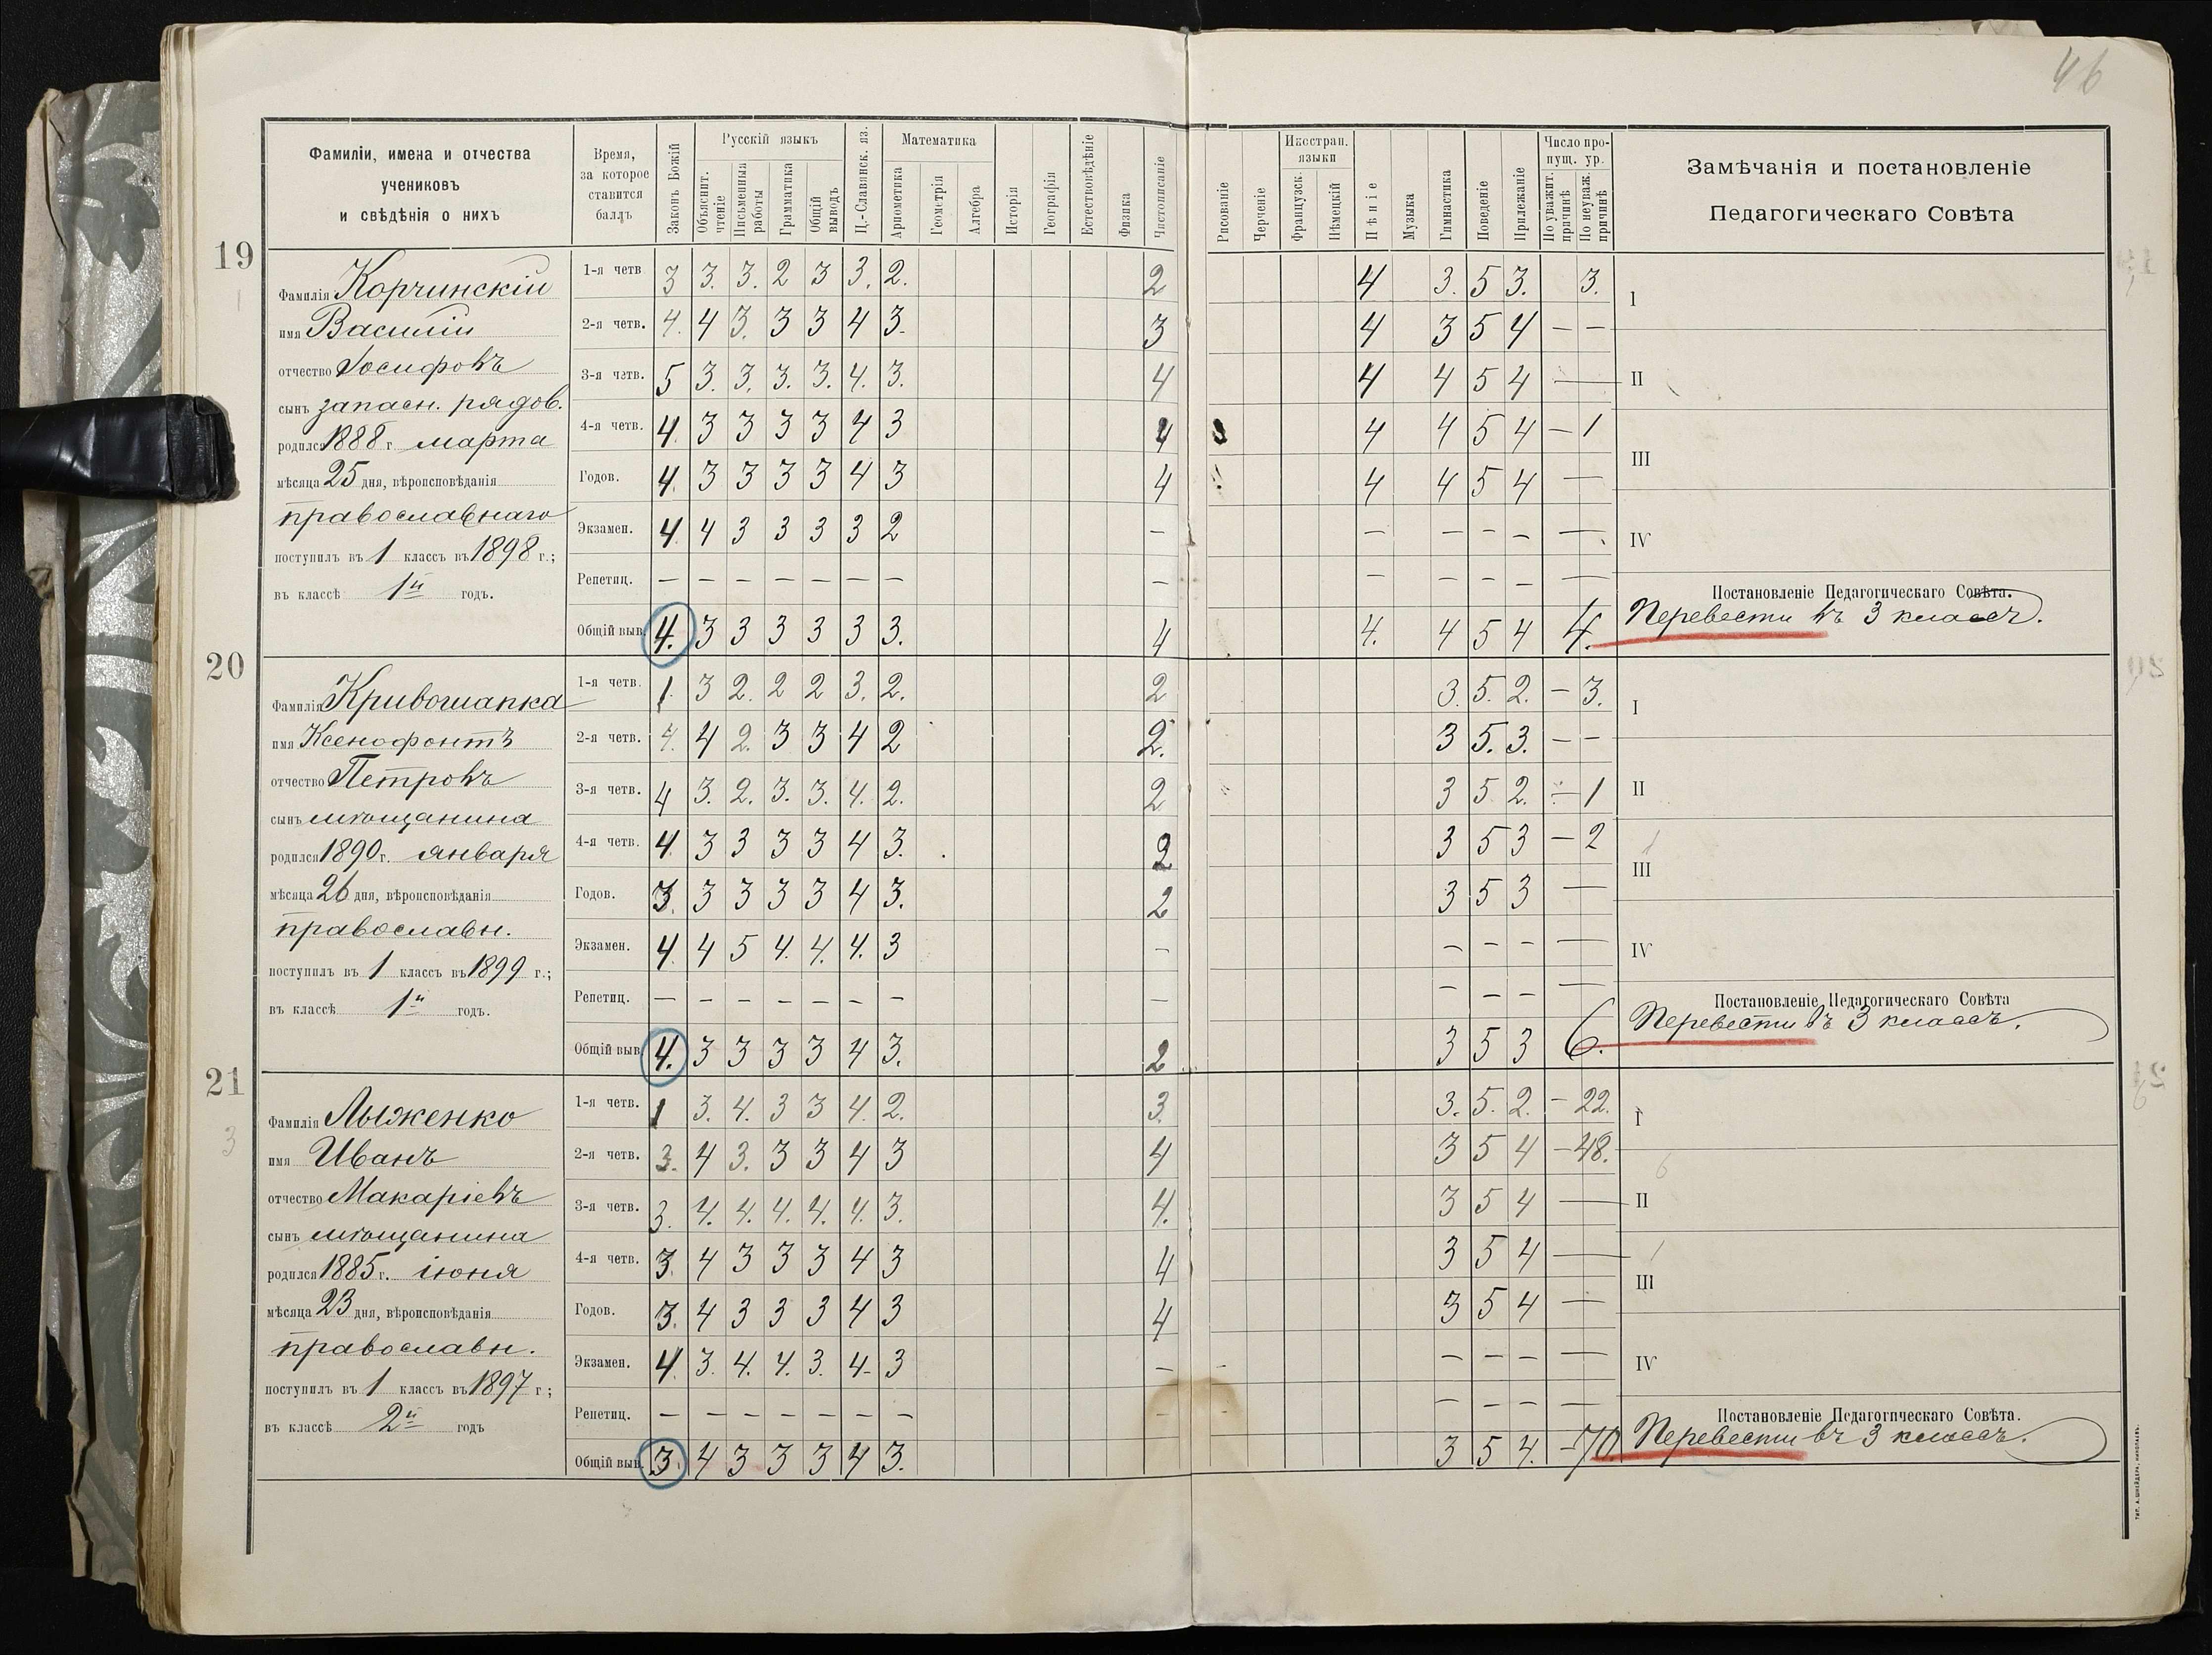 46
Фамиліи, имена и отчества
учениковъ
и свѣдѣнія о нихъ
Время,
за которое
ставится
баллъ
Законъ Божій
Русскій языкъ
Объяснит. чтеніе
Письменныя работы
Грамматика
Общій выводъ
Ц.-Славянск. яз.
Математика
Ариѳметика
Геометрія
Алгебра
Исторія
Географія
Естествовѣдѣніе
Физика
Чистописаніе
Рисованіе
Черченіе
Иностран. языки
Французск.
Нѣмецкій
Пѣніе
Музыка
Гимнастика
Поведеніе
Прилежаніе
Число пропущ. ур.
По уважит. причинѣ
По неуваж. причинѣ
Замѣчанія и постановленіе
Педагогическаго Совѣта
19
Фамилія Корчинскій
имя Василій
отчество Іосифовъ
сынъ запасн. рядов.
родился 1888 г. марта
мѣсяца 25 дня, вѣроисповѣданія
православнаго
поступилъ въ 1 классъ въ 1898 г.;
въ классѣ 1й годъ.
1-я четв. 3 3. 3. 2 3 3. 2. 2 4 3. 5 3. 3.
2-я четв. 4. 4 3. 3 3 4 3. 3 4 3 5 4 — —
3-я четв. 5 3. 3. 3. 3. 4. 3. 4 4 4 5 4 —
4-я четв. 4. 3 3 3 3 4 3 4 4 4 5 4 — 1
Годов. 4. 3 3 3 3 4 3 4 4 4 5 4 —
Экзамен. 4. 4 3 3 3 3 2 — — — — — —
Репетиц. — — — — — — — — — — — — —
Общій выв. 4. 3 3 3 3 3 3. 4 4. 4 5 4 4.
I
II
III
IV
Постановленіе Педагогическаго Совѣта.
Перевести въ 3 классъ.
20
Фамилія Кривошапка
имя Ксенофонтъ
отчество Петровъ
сынъ мѣщанина
родился 1890 г. января
мѣсяца 26 дня, вѣроисповѣданія
православн.
поступилъ въ 1 классъ въ 1899 г.;
въ классѣ 1й годъ.
1-я четв. 1. 3 2. 2 2 3. 2. 2 3. 5. 2. — 3.
2-я четв. 4. 4 2. 3 3 4 2 2. 3 5. 3. — —
3-я четв. 4 3. 2. 3. 3. 4. 2. 2 3 5 2. — 1
4-я четв. 4. 3 3 3 3 4 3. 2 3 5 3 — 2
Годов. 3. 3 3 3 3 4 3. 2 3 5 3 —
Экзамен. 4. 4 5 4. 4. 4. 3 — — — — —
Репетиц. — — — — — — — — — — — —
Общій выв. 4. 3 3 3 3 4 3. 2 3 5 3 6.
I
II
III
IV
Постановленіе Педагогическаго Совѣта
Перевести въ 3 классъ.
21
3
Фамилія Лыженко
имя Иванъ
отчество Макаріевъ
сынъ мѣщанина
родился 1885 г. іюня
мѣсяца 23 дня, вѣроисповѣданія
православн.
поступилъ въ 1 классъ въ 1897 г;
въ классѣ 2й годъ
1-я четв. 1 3. 4. 3 3 4. 2. 3. 3. 5. 2. — 22.
2-я четв. 3. 4 3. 3 3 4 3 4 3 5 4 — 48.
3-я четв. 3. 4. 4. 4. 4. 4. 3. 4. 3 5 4 —
4-я четв. 3. 4 3 3 3 4 3 4 3 5 4 —
Годов. 3. 4 3 3 3 4 3 4 3 5 4 —
Экзамен. 4. 3. 4. 4. 3. 4- 3 — — — — —
Репетиц. — — — — — — — — — — — —
Общій выв. 3. 4 3 3 3 4 3. 3 5 4. — 70.
I
II
III
IV
Постановленіе Педагогическаго Совѣта.
Перевести въ 3 классъ.
ТИП. А. ШНЕЙДЕРЪ, НИКОЛАЕВЪ.